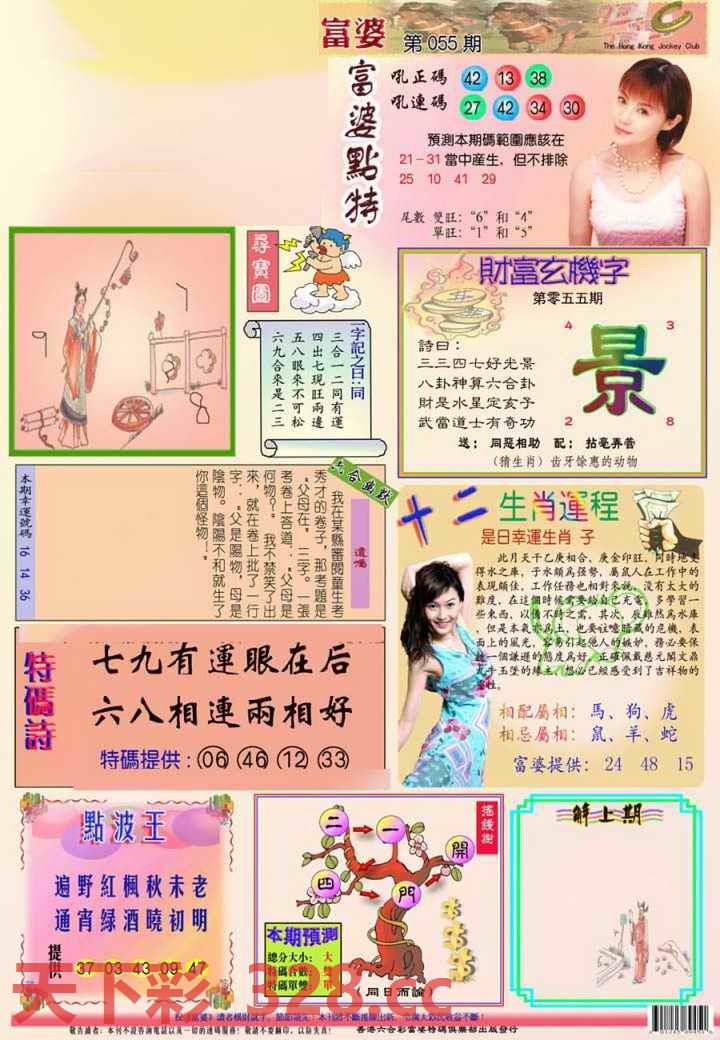 富婆 第055期
The Hong Kong Jockey Club
富婆點特
吼正碼 42 13 38
吼連碼 27 42 34 30
預測本期碼範圍應該在
21－31當中産生，但不排除
25 10 41 29
尾數 雙旺：“6”和“4”
單旺：“1”和“5”
尋寶圖
一字記之曰：同
三合一二同有運
四出七現旺兩邊
五八眼來不可松
六九合來是二三
財富玄機字
第零五五期
詩曰：
三三四七好光景
八卦神算六合卦
財是水星定亥子
武當道士有奇功
4 3
景
2 8
送：同惡相助 配：拈毫弄管
（猜生肖）齿牙馀惠的动物
六合幽默
遺囑
我在某縣審閱童生考
秀才的卷子，那考題是
“父母在”，三字。一張
考卷上答道：“父母是
何物？”我不禁笑了出
來，就在卷上批了一行
字：“父是陽物，母是
陰物。陰陽不和就生了
你這個怪物！”
本期幸運號碼 16 14 36
十二生肖運程
是日幸運生肖 子
此月天干乙庚相合，庚金印旺，同時地支
得水之庫，于水頗爲强勢，屬鼠人在工作中的
表現頗佳，工作任務也相對來説，没有太大的
難度，在這個時候需要給自己充電，多學習一
些東西，以備不時之需，其次，辰雖然爲水庫
，但是本氣亦爲土，也要注意暗藏的危機，表
面上的風光，容易引起他人的嫉妒，務必要保
持一個謙遜的態度爲好，正確佩戴慈元閣文鼎
相配屬相：馬、狗、虎
相忌屬相：鼠、羊、蛇
富婆提供：24 48 15
特碼詩
七九有運眼在后
六八相連兩相好
特碼提供：06 46 12 33
點波王
遍野紅楓秋未老
通宵绿酒曉初明
提供 37 03 43 09 47
搖錢樹
二 一 開
四 門
本期預測
總分大小：大
特碼合數：雙
特碼單雙：單
同日而論）
解上期
天下彩 328.cc
敬告讀者：本刊不設咨詢電話以及一切的透碼服務！敬請不要翻印，以防失真！
香港六合彩富婆特碼俱樂部出版發行